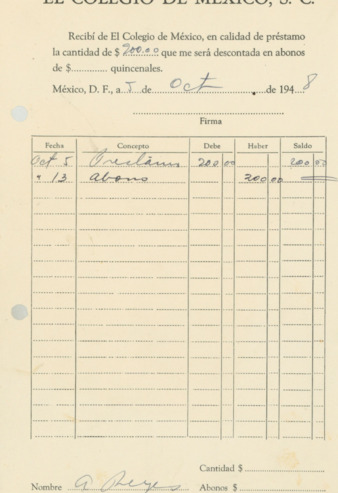 EL COLEGIO DE MEXICO, S. C.
Recibí de El Colegio de México, en calidad de préstamo
la cantidad de $ 200.00 que me será descontada en abonos
de $............. quincenales.
México, D. F., a 5 de Oct de 194 8
Firma
Fecha Concepto Debe Haber Saldo
Oct 5 Préstamo 200 00 200 00
" 13 abono 200 00
Cantidad $
Nombre A Reyes Abonos $